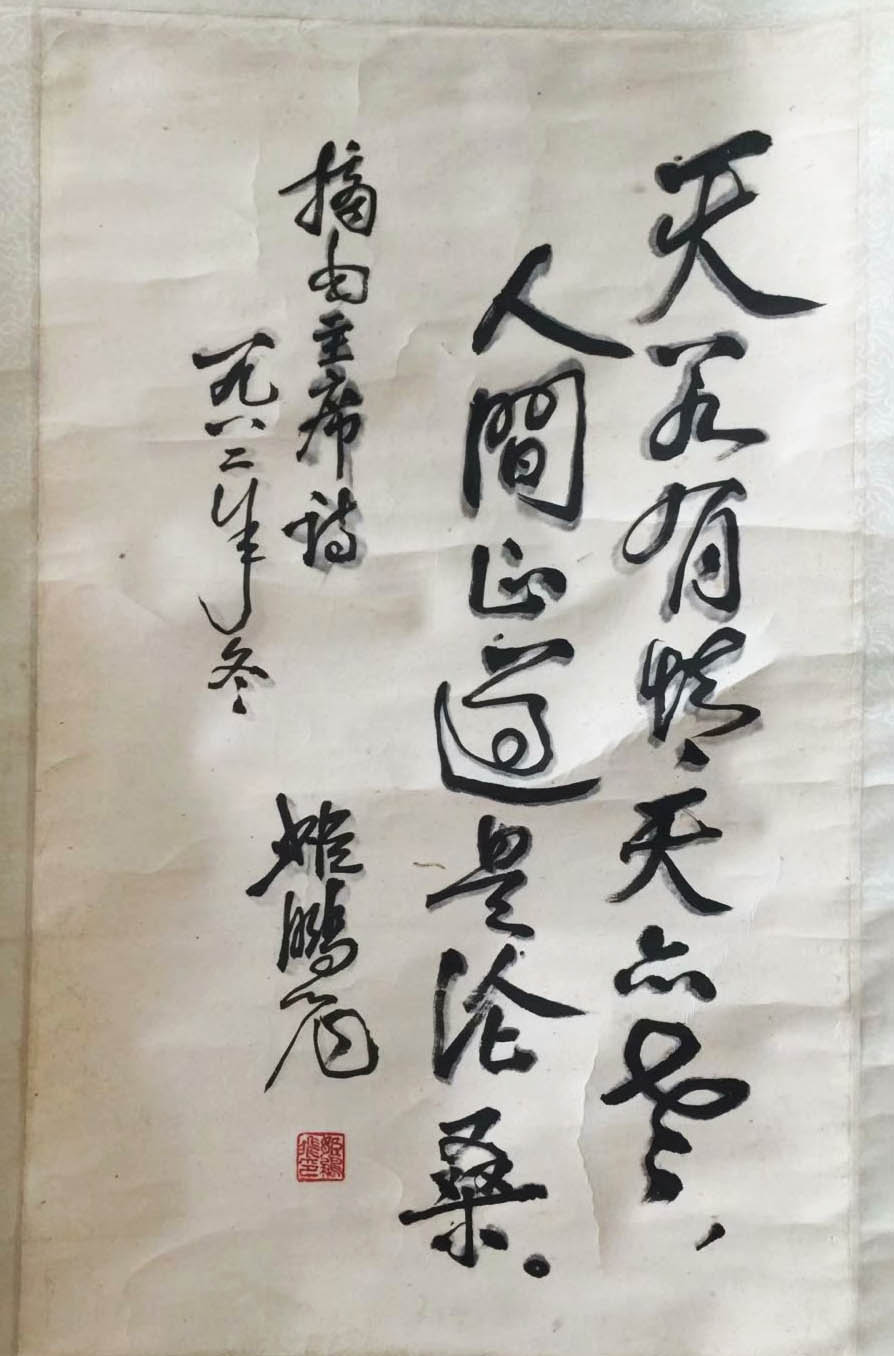 天若有情天亦老，
人間正道是沧桑。
摘由主席诗
一九八二年冬
姬鹏飞
姬鹏飞印